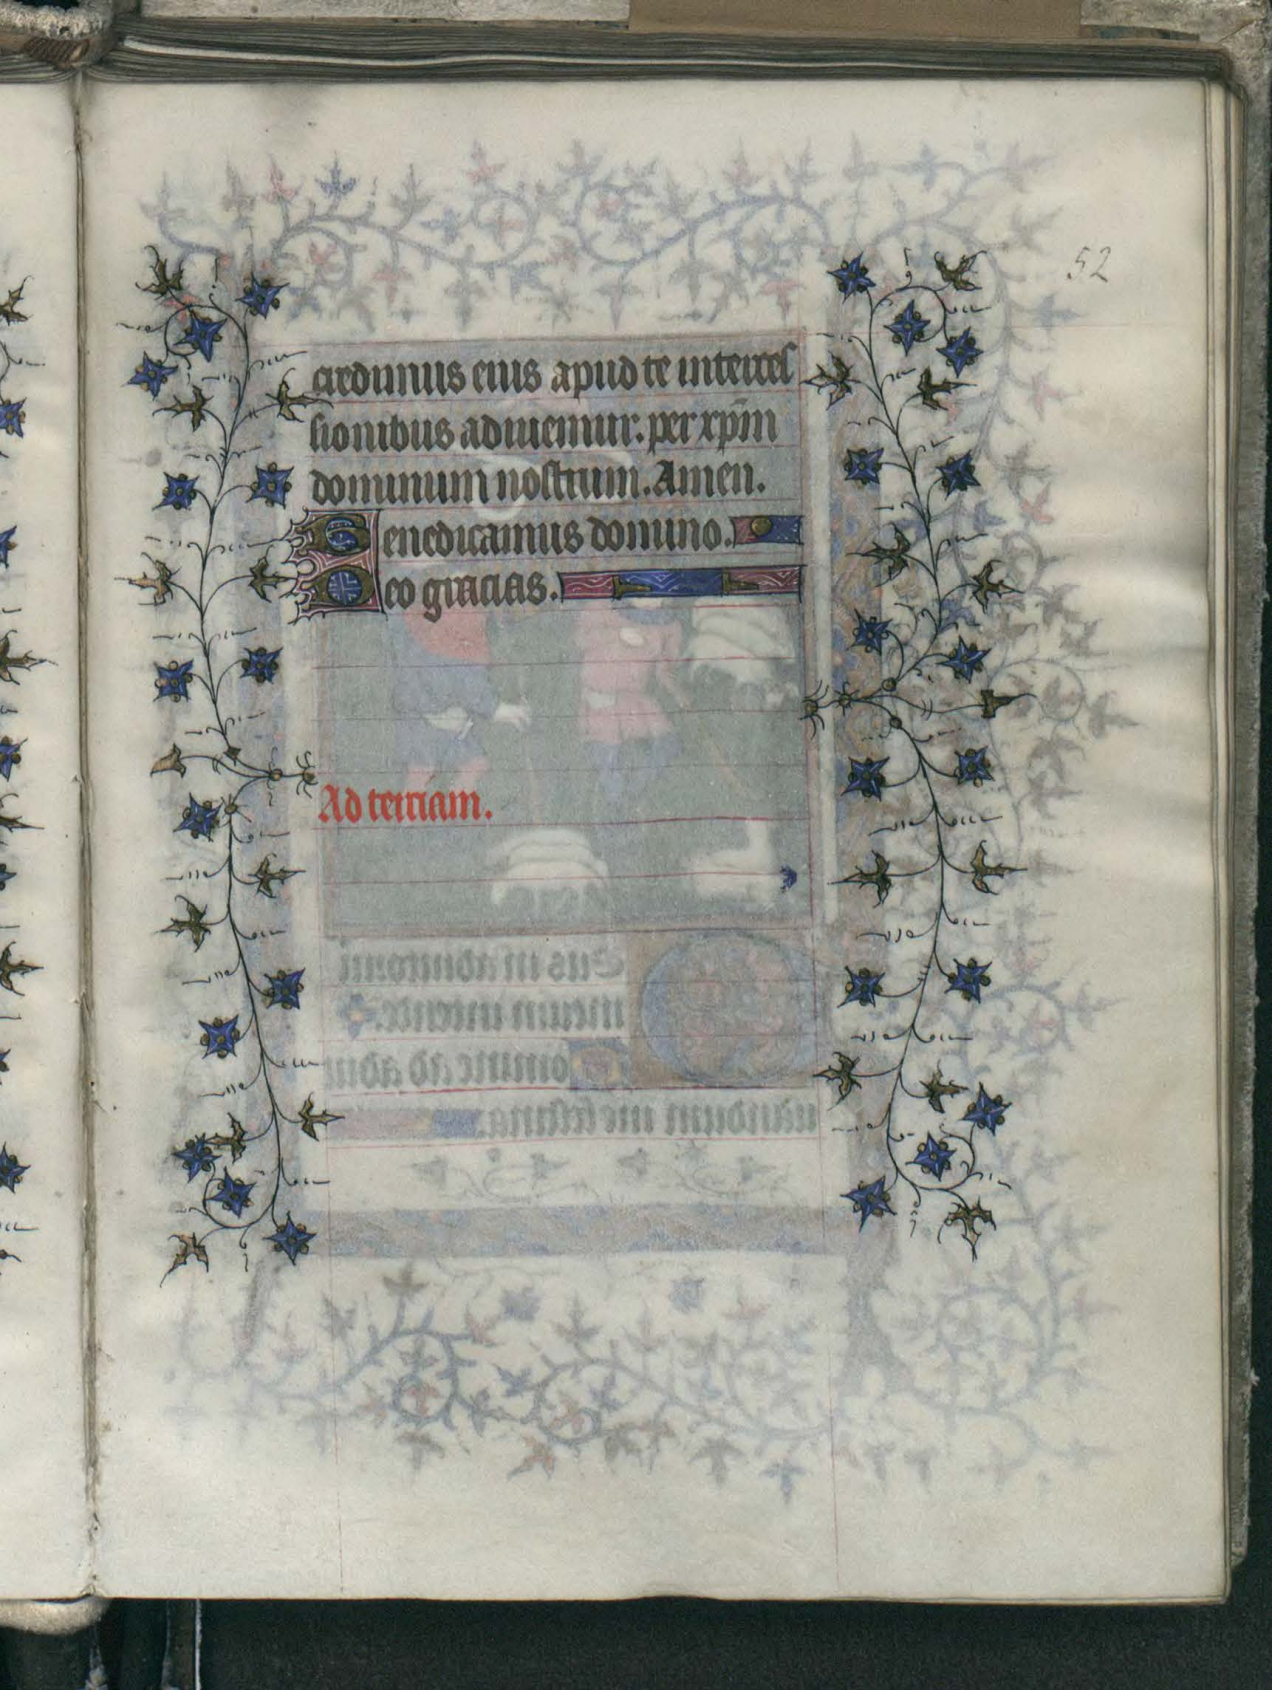 52
credimus eius apud te interces
sionibus adiuvemur. per xp̄m
dominum nostrum. Amen.
Benedicamus domino.
Deo gracias.
Ad terciam.